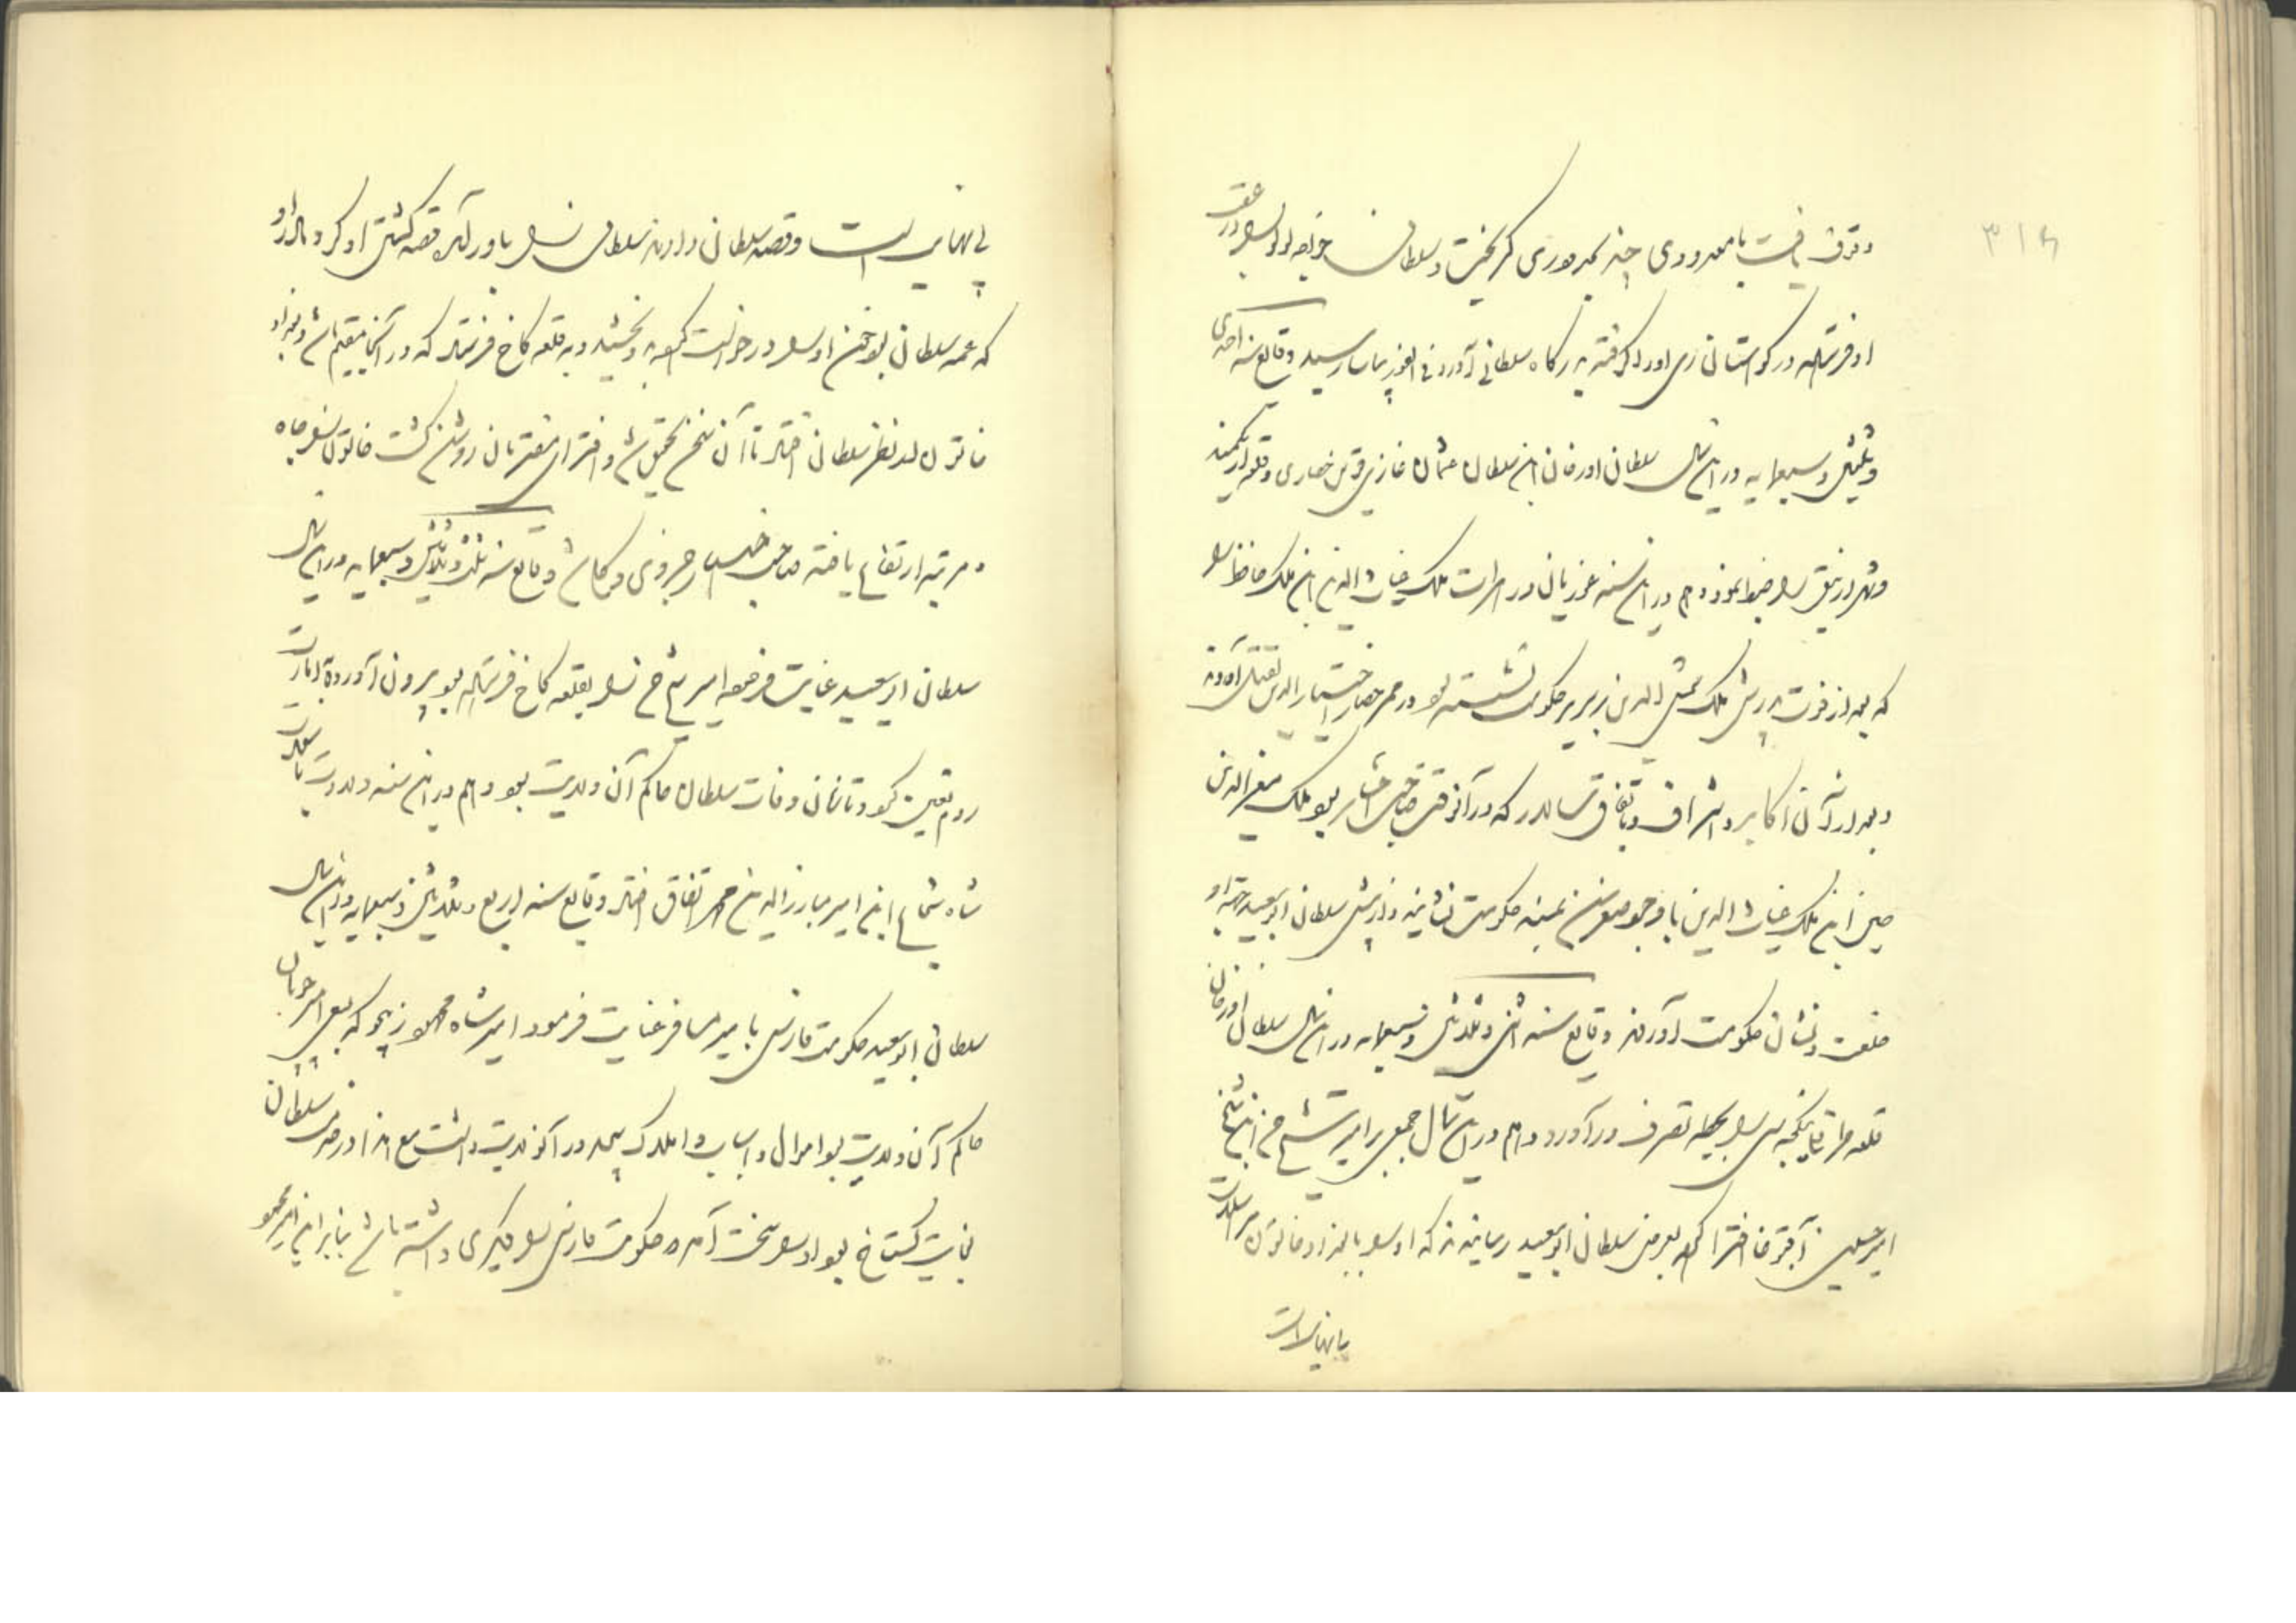 ۳۱۸
وقوف یافت با معدودی چند بمروری گریخت و سلطان خواجه لولو را در عقب
او فرستاد در کوهستان ری او را گرفته بدرگاه سلطانی آورد فی الفور بیاسا رسید وقایع سنه احدی
و ثلثین و سبعمایه در این سال سلطان اورخان ابن سلطان عثمان غازی قوین حصاری و قلعه
و شهر ازنیق را فتح نمود و هم در این سنه غوریان در هرات ملک غیاث الدین ابن ملک حافظ را
که بعد از فوت پدرش ملک شمس الدین بر سریر حکومت نشسته بود در حصار اختیار الدین بقتل آوردند
و بعد از آن اکابر و اشراف و باتفاق سالدر که در آنوقت صاحب اختیار بود ملک معز الدین
حسین ابن ملک غیاث الدین با وجود صغر سن بمسند حکومت نشاندند و از پیش سلطان ابوسعید جهة او
خلعت و نشان حکومت آوردند وقایع سنه اثنی و ثلثین و سبعمایه در این سال سلطان اورخان
قلعه طراقلی یکیجه سی را بحیطه تصرف در آورد و هم در این سال جمعی بر امیر شیخ حسن ابن
امیر حسین آقبوقا افترا کرده بعرض سلطان ابوسعید رسانیدند که او را با بغداد خاتون مراسلات
پنهانی است
پنهانی است و قصد سلطان دارند سلطان را باور آمده قصد کشتن او کرد مادر او
که عمه سلطان بود خون او را درخواست کرده بخشید و به قلعه کاخ فرستاد که در آنجا مقیم باشد و بغداد
خاتون از نظر سلطان افتاد تا آن سخن تحقیق شد و افترای مفتریان روشن گشت خاتون را جاه
و مرتبه ارتفاع یافته صاحب اختیار جزوی و کلی شد وقایع سنه ثلث و ثلاثین و سبعمایه در این سال
سلطان ابوسعید عنایت فرموده امیر شیخ حسن را بقلعه کاخ فرستاده بود بیرون آورده بامارت
روم تعیین کرد و تا زمان وفات سلطان حاکم آن ولایت بود و هم در این سنه ولادت با سعادت
شاه شجاع ابن امیر مبارز الدین محمد اتفاق افتاد وقایع سنه اربع و ثلاثین و سبعمایه در این سال
سلطان ابوسعید حکومت فارس با میر مسافر عنایت فرمود امیر شاه محمود اینجو که بعد امیر چوپان
حاکم آن ولایت بود اموال و اسباب و املاک بیحد در آن ولایت داشت مع هذا در حضرت سلطان
بغایت گستاخ بود او را سخت آمد که حکومت فارس را دیگری داشته باشد بنابراین امیر محمود